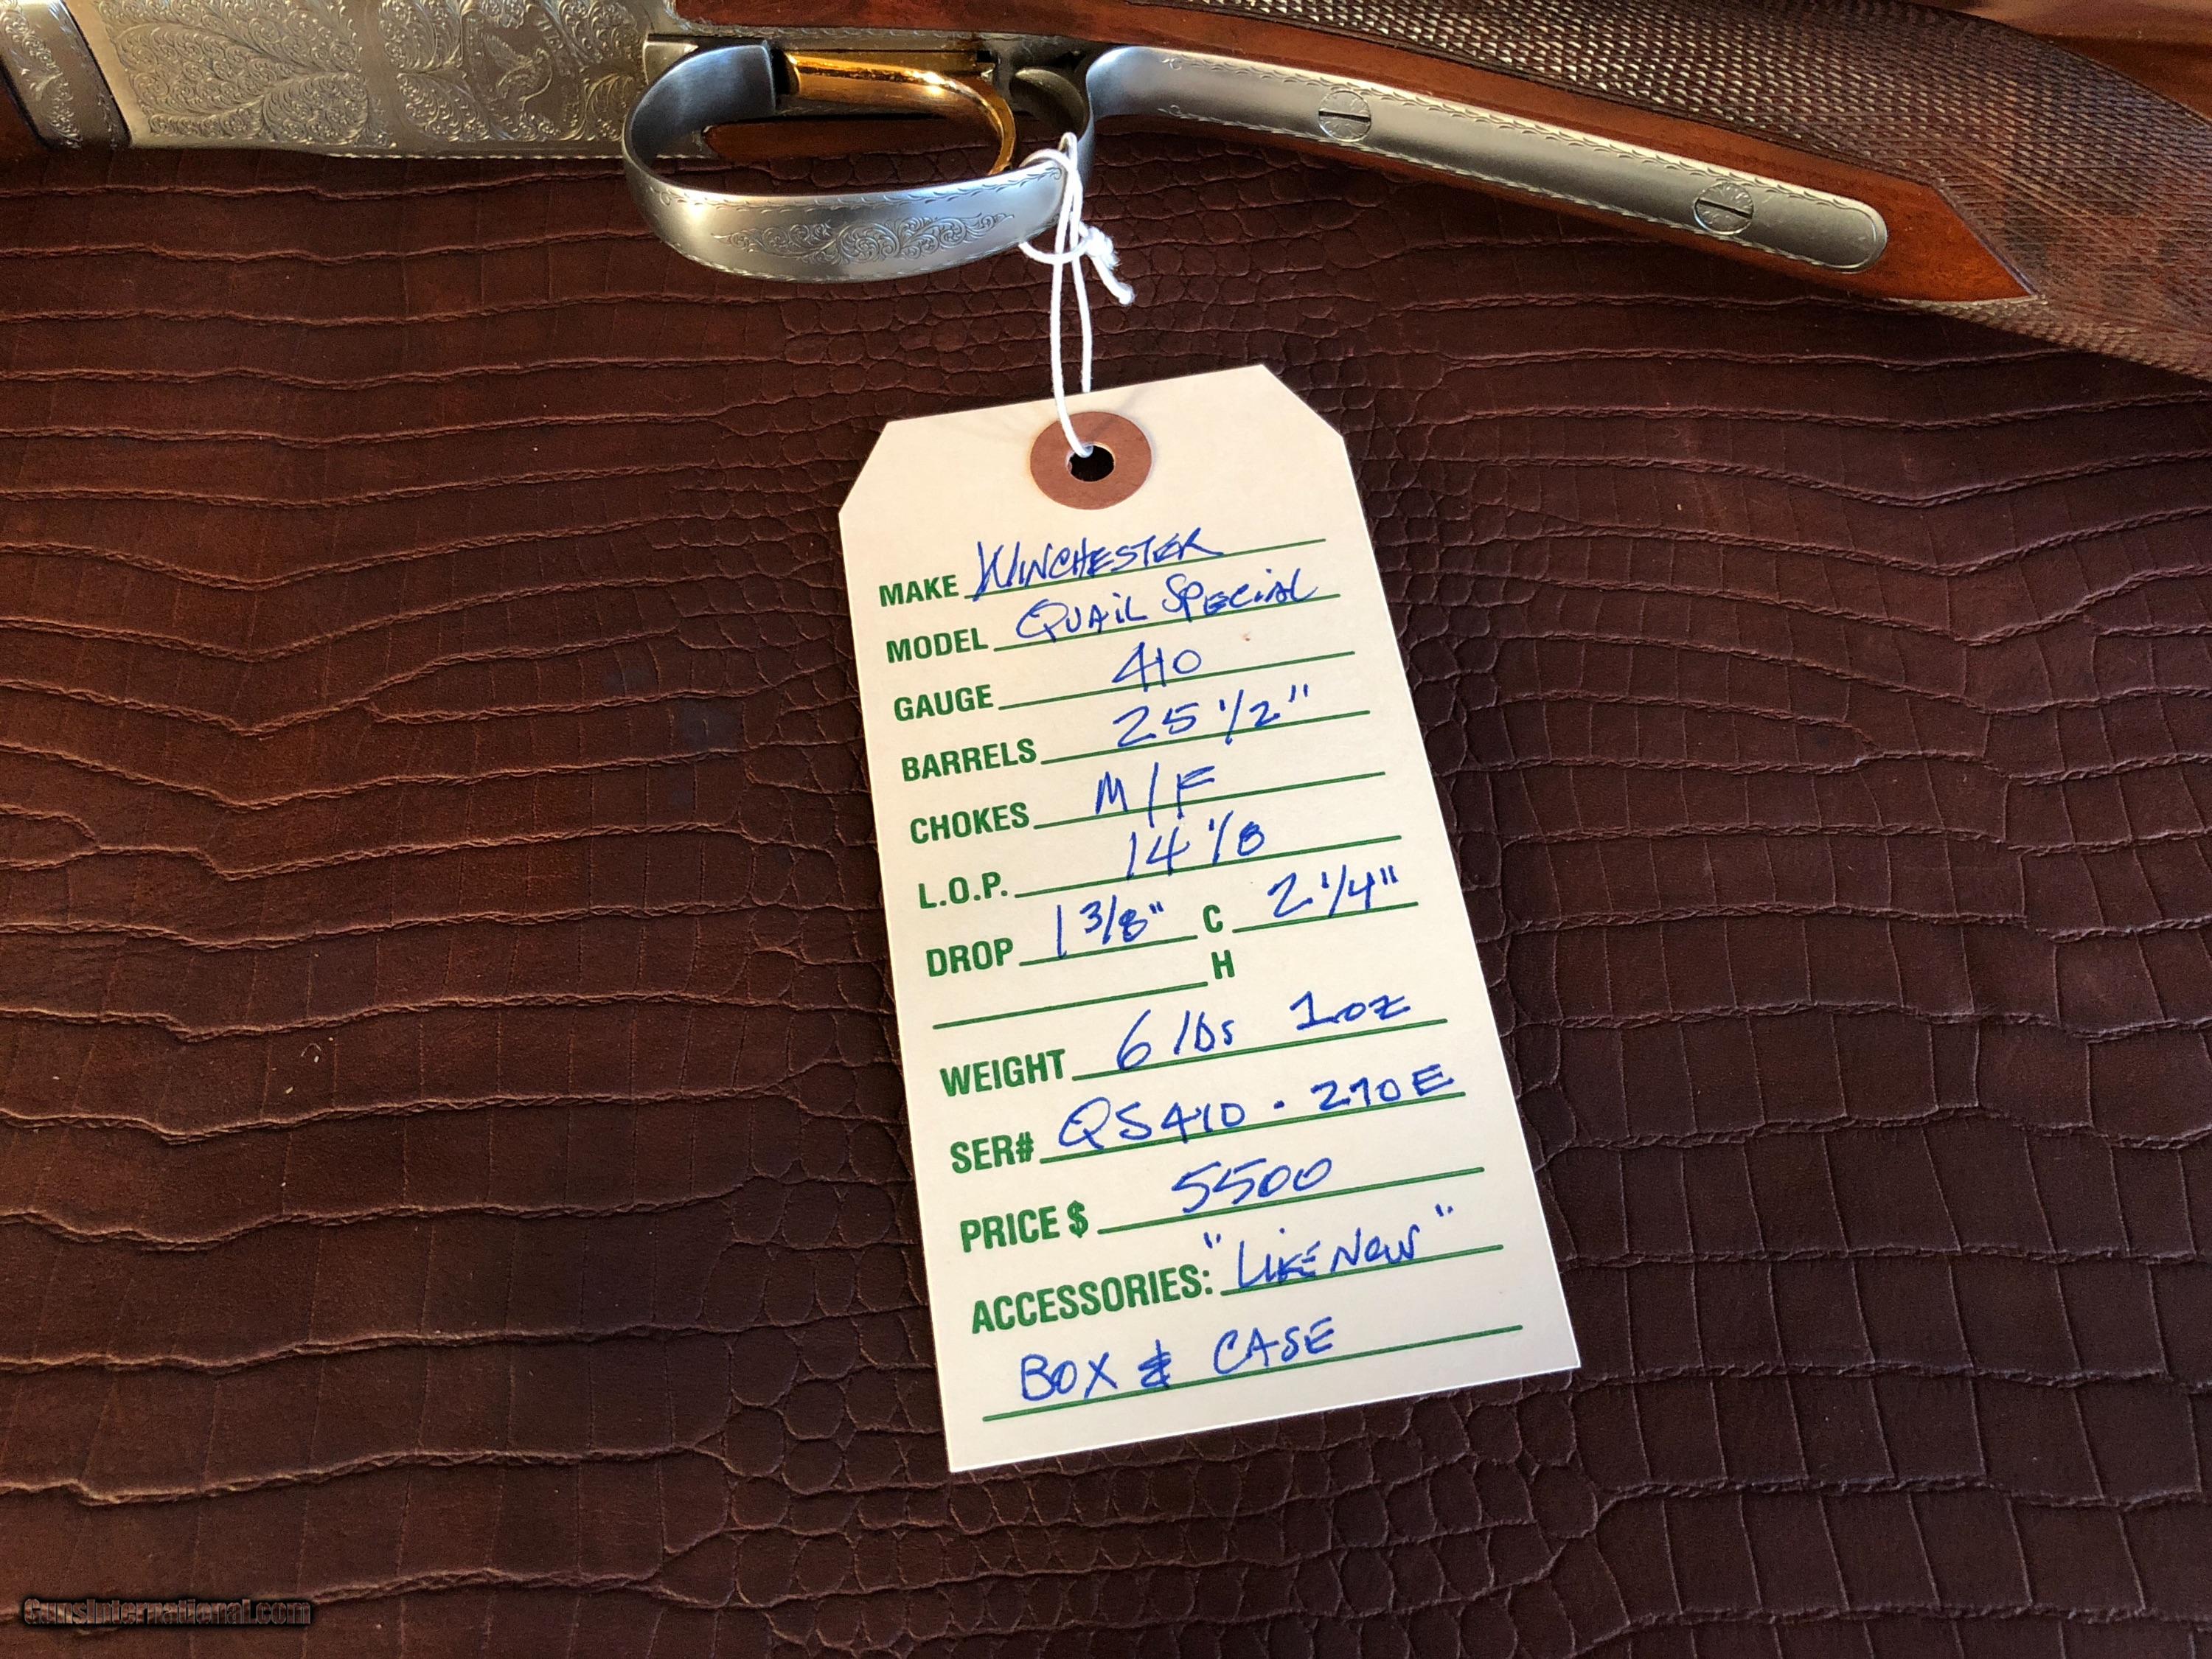 MAKE WINCHESTER
MODEL QUAIL SPECIAL
GAUGE 410
BARRELS 25 1/2"
CHOKES M/F
L.O.P. 14 1/8
DROP 1 3/8" C 2 1/4"
H
WEIGHT 6 lbs 1oz
SER# QS410 · 270E
PRICE $ 5500
ACCESSORIES: "LIKE NEW"
BOX & CASE
GunsInternational.com